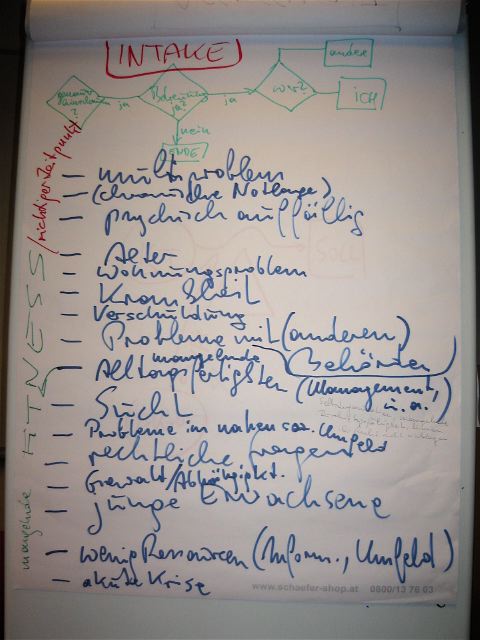 INTAKE
andere
ja
Betreuung
ja?
ja
wer?
ICH
nein
ENDE
/richtiger Zeitpunkt
- multiproblem
(chronische Notlage)
- psychisch auffällig
- Alter
- Wohnungsproblem
- Krankheit
- Verschuldung
- Probleme mit (anderen) Behörden
- mangelnde
Alltagsfertigkten (Management, u.a.)
- Sucht
- Probleme im nahen soz. Umfeld
- rechtliche Fragen
- Gewalt/Abhängigkt.
- junge Erwachsene
- wenig Ressourcen (Inform., Umfeld)
- akute Krise
mangelnde FITNESS
SOLL
www.schaefer-shop.at 0800/13 76 03